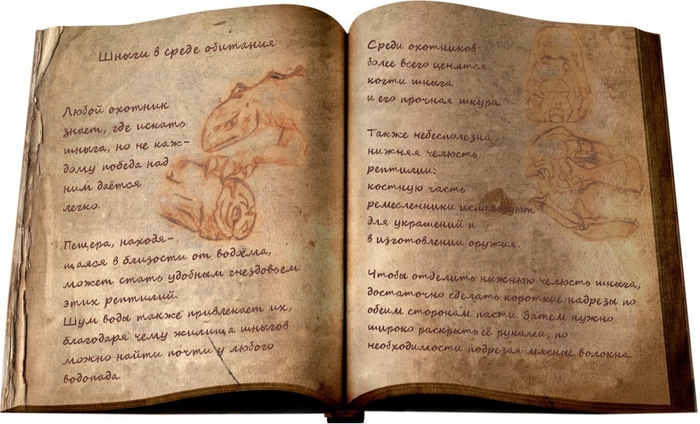 Шныги в среде обитания
Любой охотник
знает, где искать
шныга, но не каж-
дому победа над
ним даётся
легко.
Пещера, находя-
щаяся в близости от водоёма,
может стать удобным гнездовьем
этих рептилий.
Шум воды также привлекает их,
благодаря чему жилища шныгов
можно найти почти у любого
водопада.
Среди охотников
более всего ценятся
когти шныга
и его прочная шкура.
Также небесполезна
нижняя челюсть
рептилии:
костную часть
ремесленники используют
для украшений и
в изготовлении оружия.
Чтобы отделить нижнюю челюсть шныга,
достаточно сделать короткие надрезы по
обеим сторонам пасти. Затем нужно
широко раскрыть её руками, по
необходимости подрезая мясные волокна.